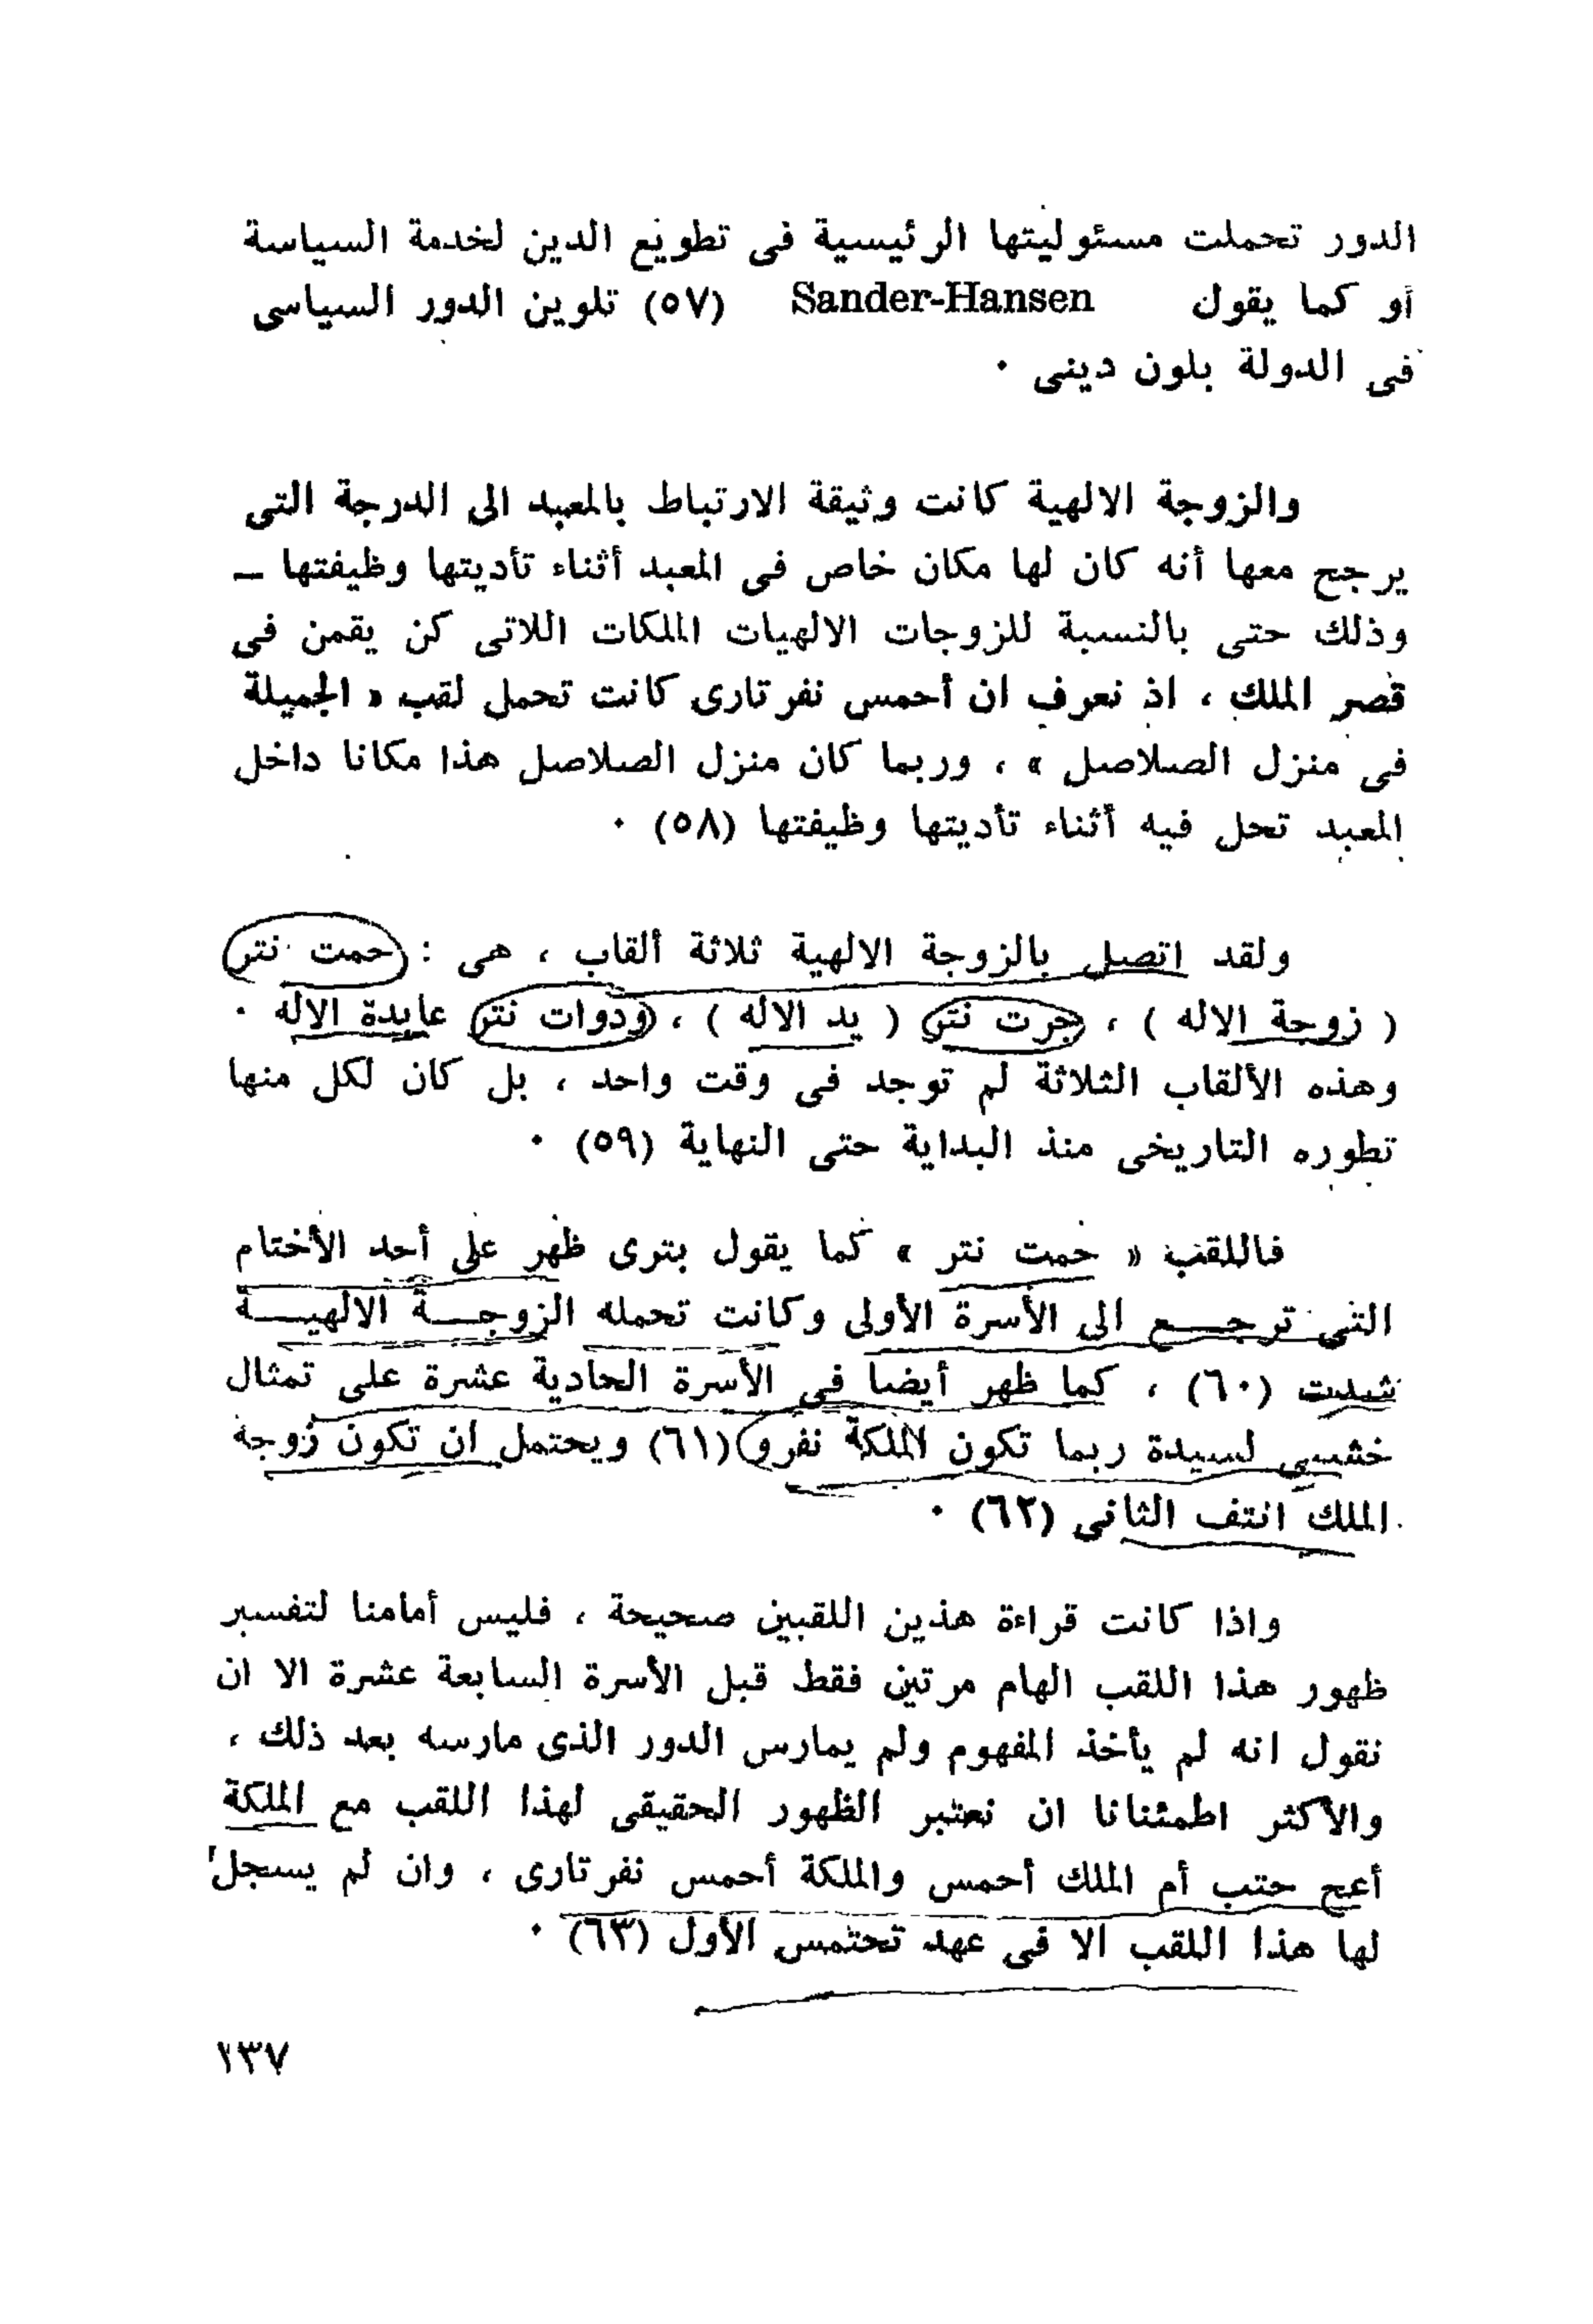 الدور تحملت مسئوليتها الرئيسية فى تطويع الدين لخدمة السياسة
أو كما يقول Sander-Hansen (٥٧) تلوين الدور السياسى
فى الدولة بلون دينى ٠
والزوجة الالهية كانت وثيقة الارتباط بالمعبد الى الدرجة التى
يرجح معها أنه كان لها مكان خاص فى المعبد أثناء تأديتها وظيفتها ــ
وذلك حتى بالنسبة للزوجات الالهيات الملكات اللاتى كن يقمن فى
قصر الملك ، اذ نعرف ان أحمس نفرتارى كانت تحمل لقب « الجميلة
فى منزل الصلاصل » ، وربما كان منزل الصلاصل هذا مكانا داخل
المعبد تحل فيه أثناء تأديتها وظيفتها (٥٨) ٠
ولقد اتصل بالزوجة الالهية ثلاثة ألقاب ، هى : حمت نتر
( زوجة الاله ) ، جرت نتر ( يد الاله ) ، ودوات نتر عابدة الاله ٠
وهذه الألقاب الثلاثة لم توجد فى وقت واحد ، بل كان لكل منها
تطوره التاريخى منذ البداية حتى النهاية (٥٩) ٠
فاللقب « حمت نتر » كما يقول بترى ظهر على أحد الأختام
التى ترجــع الى الأسرة الأولى وكانت تحمله الزوجــة الالهيــة
شدت (٦٠) ، كما ظهر أيضا فى الأسرة الحادية عشرة على تمثال
خشبى لسيدة ربما تكون الملكة نفرو (٦١) ويحتمل ان تكون زوجة
الملك انتف الثانى (٦٢) ٠
واذا كانت قراءة هذين اللقبين صحيحة ، فليس أمامنا لتفسير
ظهور هذا اللقب الهام مرتين فقط قبل الأسرة السابعة عشرة الا ان
نقول انه لم يأخذ المفهوم ولم يمارس الدور الذى مارسه بعد ذلك ،
والأكثر اطمئنانا ان نعتبر الظهور الحقيقى لهذا اللقب مع الملكة
أعح حتب أم الملك أحمس والملكة أحمس نفرتارى ، وان لم يسجل
لها هذا اللقب الا فى عهد تحتمس الأول (٦٣) ٠
١٣٧